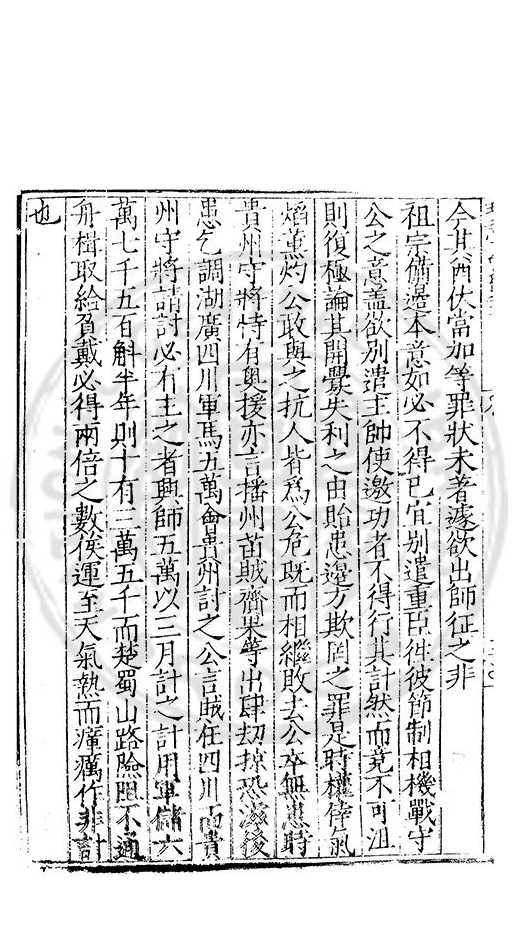 今其酋伏當加等罪狀未著遽欲出師征之非
祖宗備邊本意如必不得已宜別遣重臣徃彼節制相機戰守
公之意盖欲別遣主帥使邀功者不得行其計然而竟不可沮
則復極論其開釁失利之由貽患邊方欺罔之罪是時權倖氣
焰薰灼公敢與之抗人皆爲公危既而相繼敗去公卒無患時
貴州守將恃有奥援亦言播州苗賊齎果等出肆刼掠恐滋後
患乞調湖廣四川軍馬五萬會貴州討之公言賊在四川而貴
州守將請討必有主之者興師五萬以三月計之計用軍儲六
萬七千五百斛半年則十有三萬五千而楚蜀山路險阻不通
舟楫取給負戴必得兩倍之數俟運至天氣熱而瘴癘作非計
也